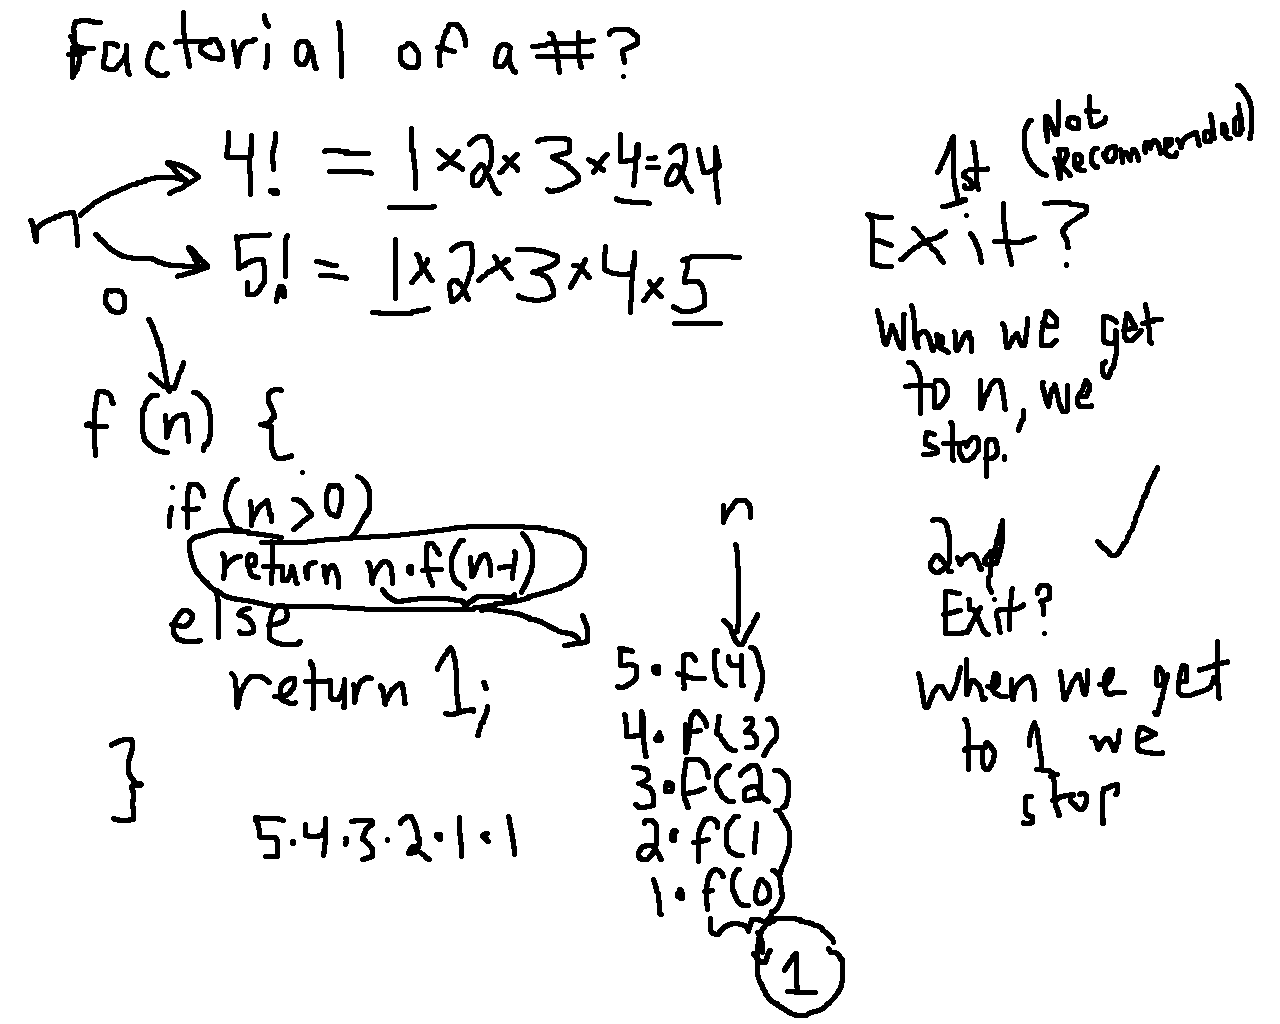 Factorial of a #?
4! = 1 × 2 × 3 × 4 = 24
n
5! = 1 × 2 × 3 × 4 × 5
0
f(n) {
if (n > 0)
return n · f(n-1)
else
return 1;
}
5 · 4 · 3 · 2 · 1 · 1
n
5 · f(4)
4 · f(3)
3 · f(2)
2 · f(1)
1 · f(0)
1
1st (Not
Recommended)
Exit?
When we get
to n, we
stop.
2nd
Exit?
when we get
to 1 we
stop